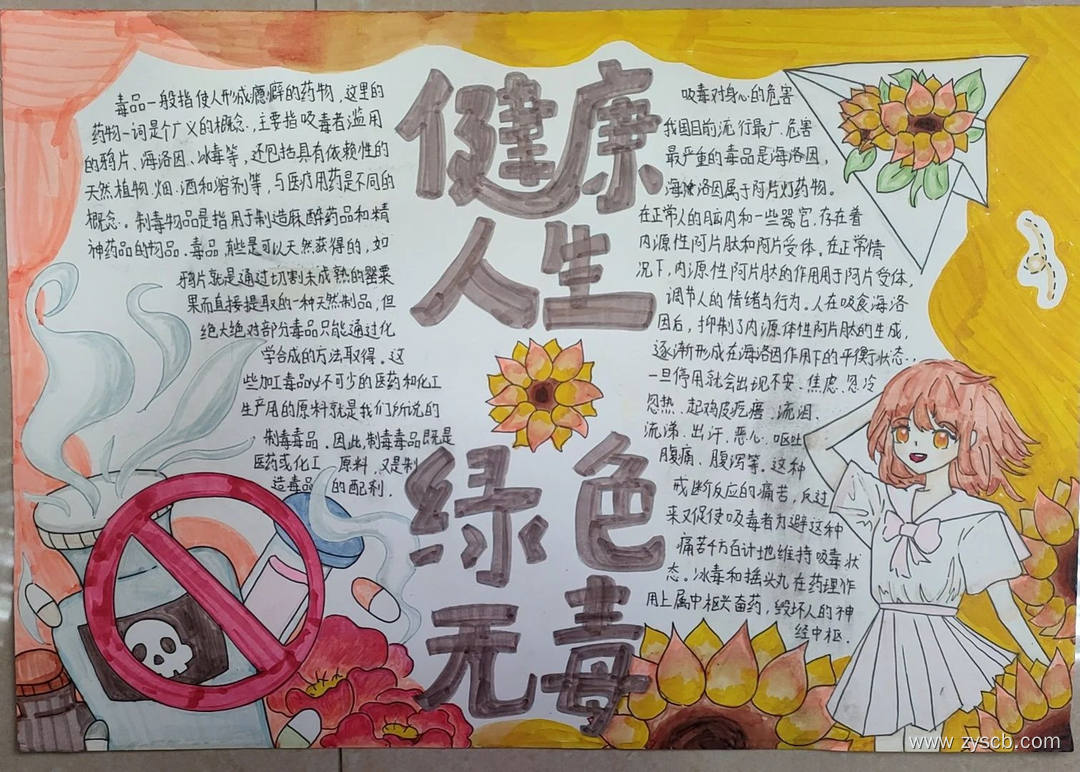 健康
人生
绿色
无毒
毒品一般指使人形成瘾癖的药物，这里的
药物一词是个广义的概念，主要指吸毒者滥用
的鸦片、海洛因、冰毒等，还包括具有依赖性的
天然植物、烟、酒和溶剂等，与医疗用药是不同的
概念。制毒物品是指用于制造麻醉药品和精
神药品的物品。毒品，有些是可以天然获得的，如
鸦片就是通过切割未成熟的罂粟
果而直接提取的一种天然制品，但
绝大绝对部分毒品只能通过化
学合成的方法取得。这
些加工毒品必不可少的医药和化工
生产用的原料就是我们所说的
制毒毒品。因此，制毒毒品既是
医药或化工 原料，又是制
造毒品 的配剂。
吸毒对身心的危害
我国目前流行最广、危害
最严重的毒品是海洛因，
海洛因属于阿片灯药物。
在正常人的脑内和一些器官，存在着
内源性阿片肽和阿片受体。在正常情
况下，内源性阿片肽的作用用于阿片受体，
调节人的情绪与行为。人在吸食海洛
因后，抑制了内源体性阿片肽的生成，
逐渐形成在海洛因作用下的平衡状态，
一旦停用就会出现不安、焦虑、忽冷
忽热、起鸡皮疙瘩、流泪、
流涕、出汗、恶心、呕吐、
腹痛、腹泻等。这种
戒断反应的痛苦，反过
来又促使吸毒者为避这种
痛苦千方百计地维持吸毒状
态。冰毒和摇头丸在药理作
用上属中枢兴奋药，毁坏人的神
经中枢.
www.zyscb.com